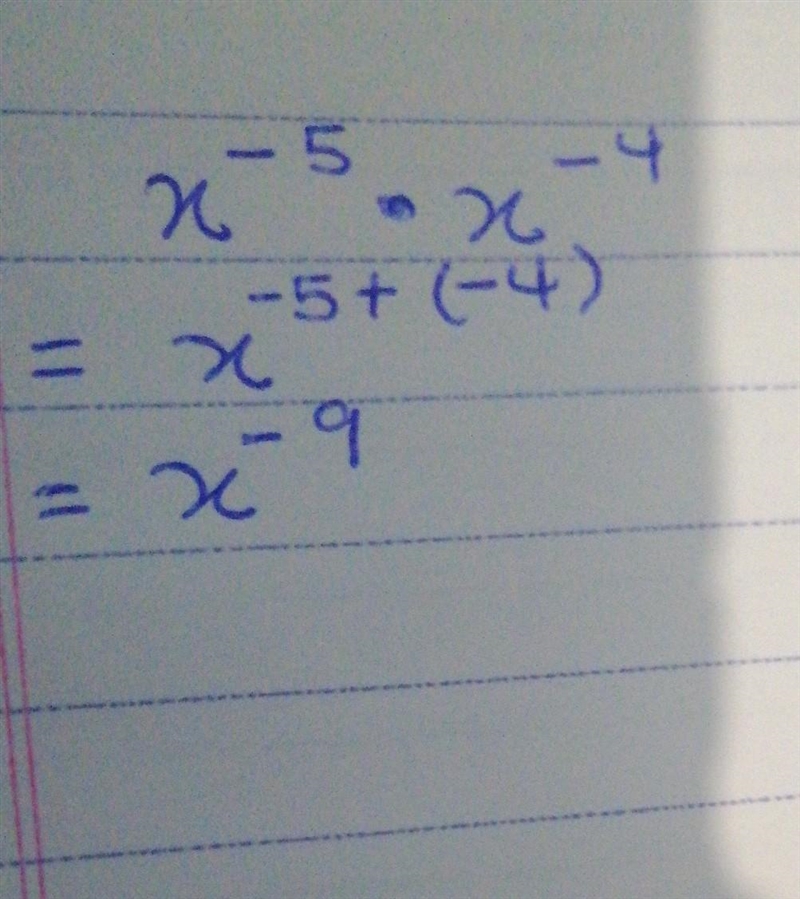 x⁻⁵ · x⁻⁴
= x⁻⁵⁺⁽⁻⁴⁾
= x⁻⁹